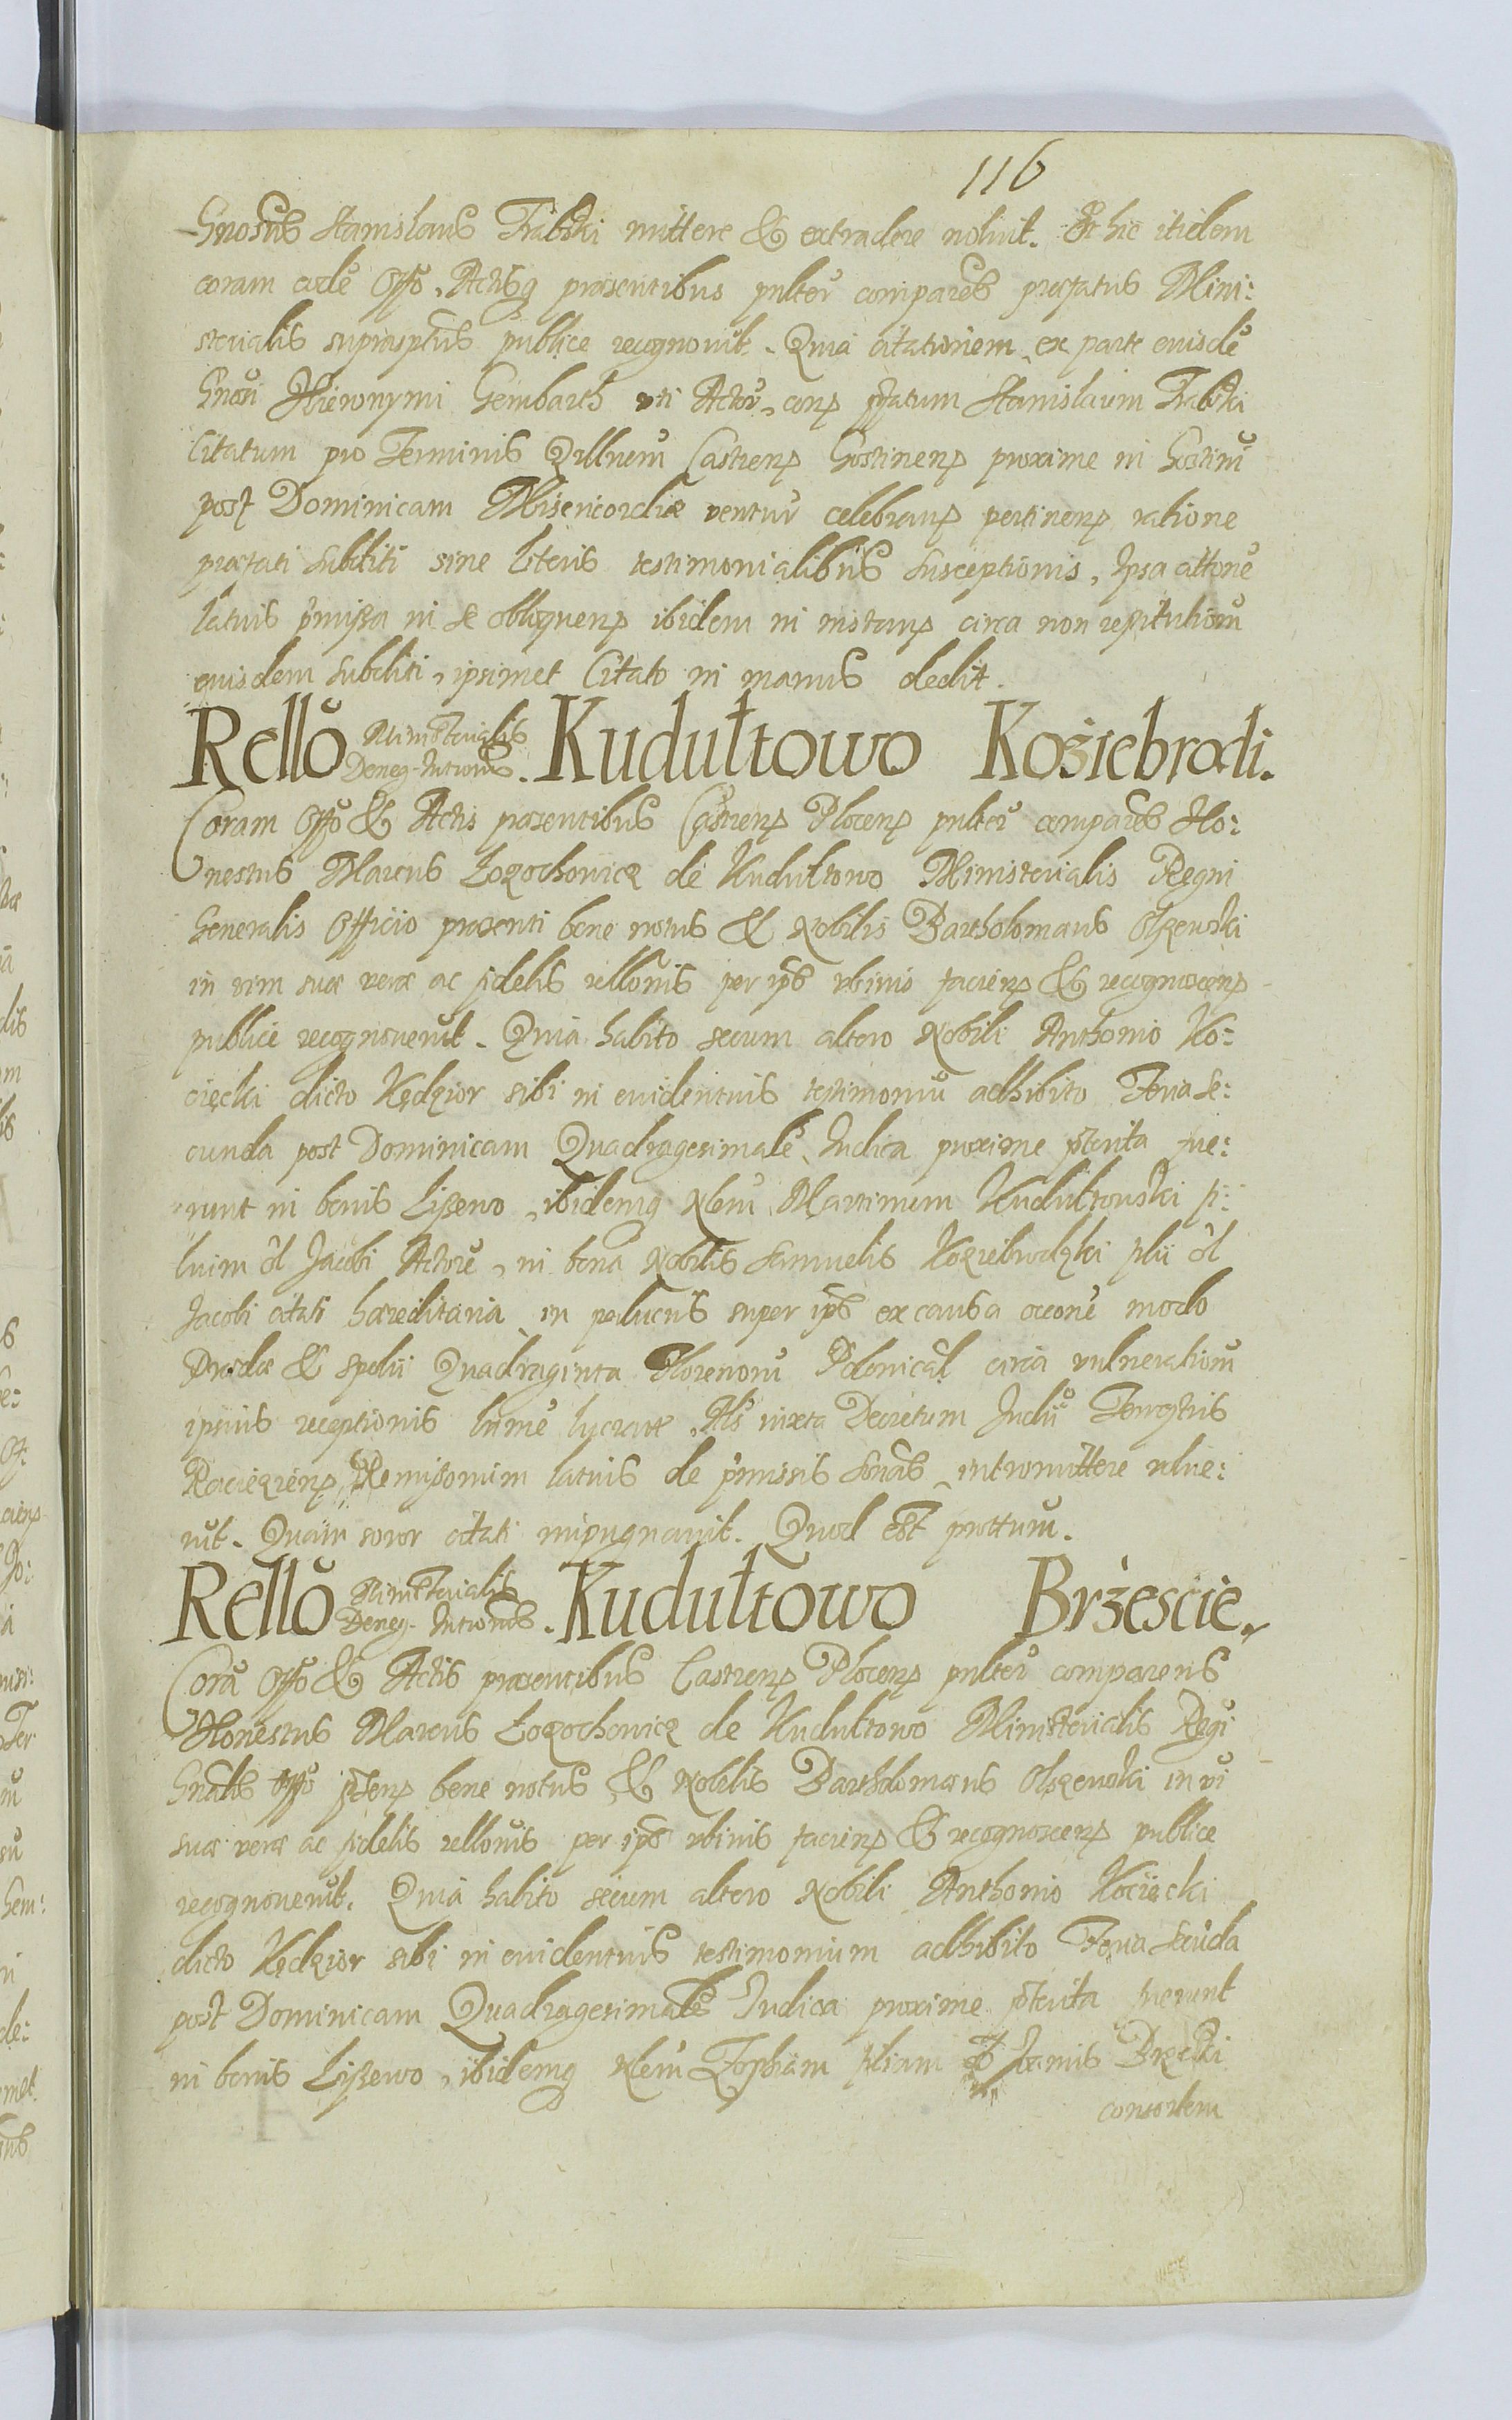 116
Gnosus Stanislaus Trabski mittere & extradere noluit. Et hic itidem
coram eodē Offō, Actisq̨ praesentibus pnltēr comparēs praefatus Mini:
sterialis suprasptūs publice recognovit. Quia citationem ex parte eiusdē
Gnosi Hieronymi Gembarth uti Actor, conp pfatum Stanislaum Trabski
Citatum pro Terminis Qrllnem̄ Castrenp Gostinenp proxime in Gostinū
post Dominicam Misericordiae ventur celebranp pertinenp ratione
praefati subditi sine literis testimonialibus susceptionis, Ipsa attone
latius pmissa in se obloquenp ibidem in instanp circa non restitutionū
eiusdem subditi, ipsimet Citato in manus dedit.
Rellō Ministerialis
Deneg. Intronis. Kudułtowo Koźiebrodi.
Coram Offō & Actis praesentibus Castrenp Plocenp pnltēr comparēs Ho:
nestus Marcus Łozochowicz de Kudułtowo Ministerialis Regni
Generalis Officio praesenti bene notus & Nobilis Bartholomaeus Olszewski
in vim suae verae ac fidelis rellonis per ipōs ubinis facienp & recognoscenp
publice recognoverūt. Quia habito secum altero Nobili Anthonio Ko:
cięcki dicto Kędzior sibi in evidentius testimoniū adhibito Feria Se:
cunda post Dominicam Quadragesimalē Iudica proxime pterita fue:
runt in bonis Lissewo, ibidemq̨ Nlem̄ Martinum Kudułtowski fi:
lium ōl Jacobi Actorē, in bona Nobilis Samuelis Koziebrodzki filii ōl
Jacobi citati haereditaria in pellucris super ipō ex causa accone modo
Praedae & spolii Quadraginta Florenorū Polonical circa vulneratiōnū
ipsius receptionis lumē lucratae, Als iuxta Decretum Iudii Terrestris
Raciezienp Remissorium latius de pmissis sonās, intromittere volue:
rūt. Quam soror citati impugnavit. Quod est prottum.
Rellō Ministerialis
Deneg. Intronis. Kudułtowo Brzeście.
Corā Offō & Actis praesentibus Castrenp Plocenp pnltēr comparens
Honestus Marcus Łozochowicz de Kudułtowo Ministerialis Regi
Gnalis Offō ptenp bene notus & Nobilis Bartholomaeus Olszewski in vi
suae verae ac fidelis rellonis per ipōs ubinis facienp & recognoscenp publice
recognoverūt. Quia habito secum altero Nobili Anthonio Kocięcki
dicto Kędzior sibi in evidentius testimonium adhibito Feria Secūda
post Dominicam Quadragesimalē Iudica proxime pterita fuerunt
in bonis Lissewo, ibidemq̨ Nlem̄ Zophiam filiam Joannis Brzeski
consortem